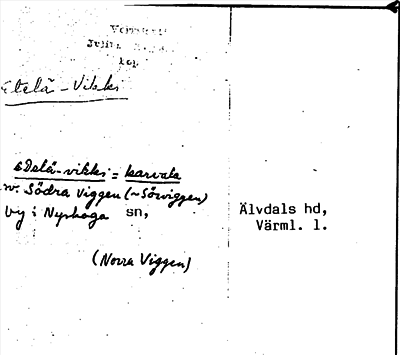 Etelä-Vikki
edelä-vikki = karvala
Södra Viggen (~Sörviggen)
by i Nyskoga sn,
Älvdals hd,
Värml. l.
(Norra Viggen)